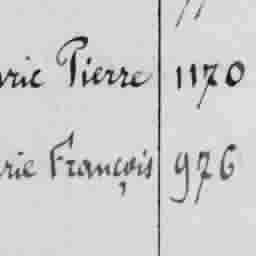 rie Pierre 1170
rie François 976